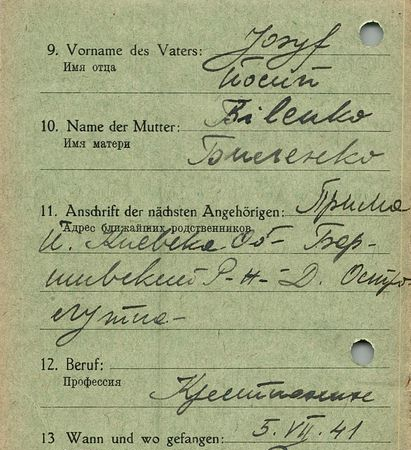 9. Vorname des Vaters: Jozyf
Имя отца Йосип
Bilenko
10. Name der Mutter:
Имя матери Биленко
11. Anschrift der nächsten Angehörigen:
Адрес ближайших родственников
Киевска Об-
Р-Н- Д. Остро
лутча-
12. Beruf:
Профессия Крестьянин
13 Wann und wo gefangen: 5. VII. 41